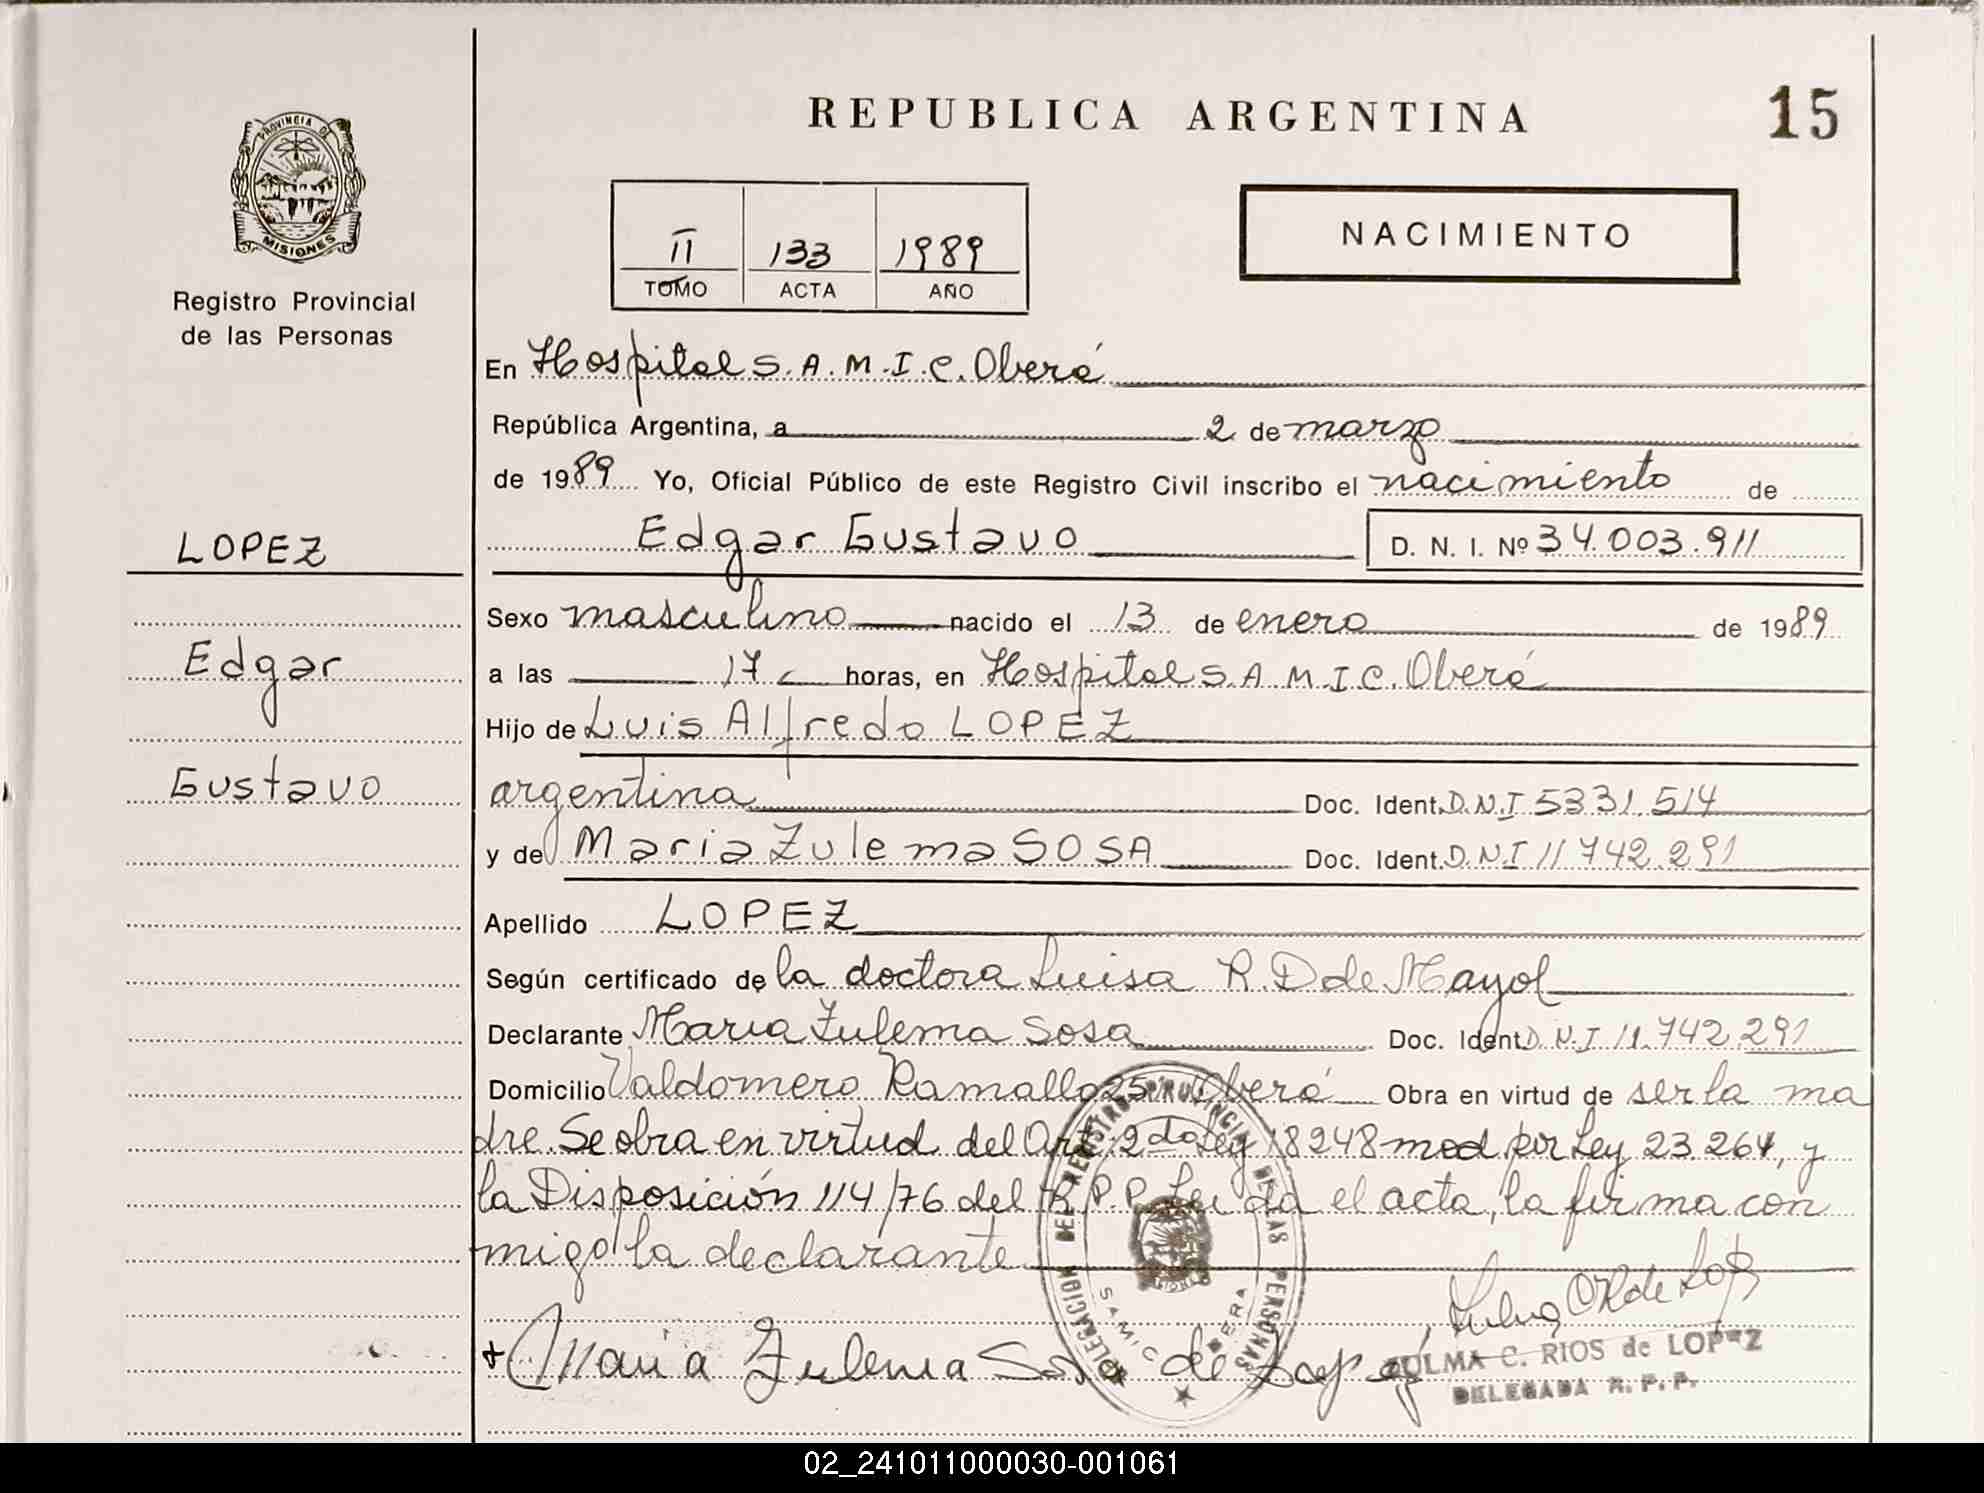 REPUBLICA ARGENTINA
15
PROVINCIA DE
MISIONES
Registro Provincial
de las Personas
II 133 1989
TOMO ACTA AÑO
NACIMIENTO
En Hospital S.A.M.I.C. Oberá
República Argentina, a 2 de marzo
de 1989 Yo, Oficial Público de este Registro Civil inscribo el nacimiento de
Edgar Gustavo D. N. I. Nº 34.003.911
LOPEZ
Edgar
Gustavo
Sexo masculino nacido el 13 de enero de 1989
a las 17 horas, en Hospital S.A.M.I.C. Oberá
Hijo de Luis Alfredo LOPEZ
argentina Doc. Ident. D.N.I 5331.514
y de Maria Zulema SOSA Doc. Ident. D.N.I 11742.291
Apellido LOPEZ
Según certificado de la doctora Luisa R. D de Mayol
Declarante Maria Zulema Sosa Doc. Ident. D.N.I 11.742.291
Domicilio Valdomero Ramallo 25 Oberá Obra en virtud de ser la ma
dre. Se obra en virtud del Art. 2do Ley 18248 mod por Ley 23.264, y
la Disposición 114/76 del R.P.P. Leida el acta, la firma con
migo la declarante
DELEGACION DEL REGISTRO PROVINCIAL DE LAS PERSONAS
SAMIC OBERA
+ Maria Zulema Sosa de Lopez
ZULMA C. RIOS de LOPEZ
DELEGADA R. P. P.
02_241011000030-001061